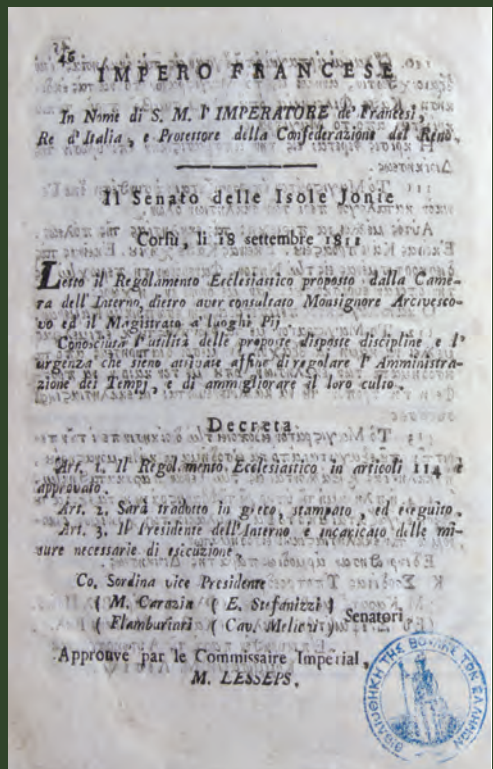 46
IMPERO FRANCESE
In Nome di S. M. l' IMPERATORE de' Francesi,
Re d'Italia, e Protettore della Confederazione del Reno.
Il Senato delle Isole Jonie
Corfù, li 18 settembre 1811
Letto il Regolamento Ecclesiastico proposto dalla Came-
ra dell'Interno, dietro aver consultato Monsignore Arcivesco-
vo ed il Magistrato a' luoghi Pij
Conosciuta l'utilità delle proposte disposte discipline e l'
urgenza che sieno attivate affine di regolare l'Amministra-
zione dei Tempj, e di ammigliorare il loro culto.
Decreta
Art. 1. Il Regolamento Ecclesiastico in articoli 114 è
approvato.
Art. 2. Sarà tradotto in greco, stampato, ed eseguito.
Art. 3. Il Presidente dell'Interno è incaricato delle mi-
sure necessarie di esecuzione.
Co. Sordina vice Presidente
( M. Carazia ( E. Stefanizzi )
( Flamburiari ( Cav. ) Senatori
Approuvé par le Commissaire Imperial,
M. LESSEPS.
ΒΙΒΛΙΟΘΗΚΗ ΤΗΣ ΒΟΥΛΗΣ ΤΩΝ ΕΛΛΗΝΩΝ